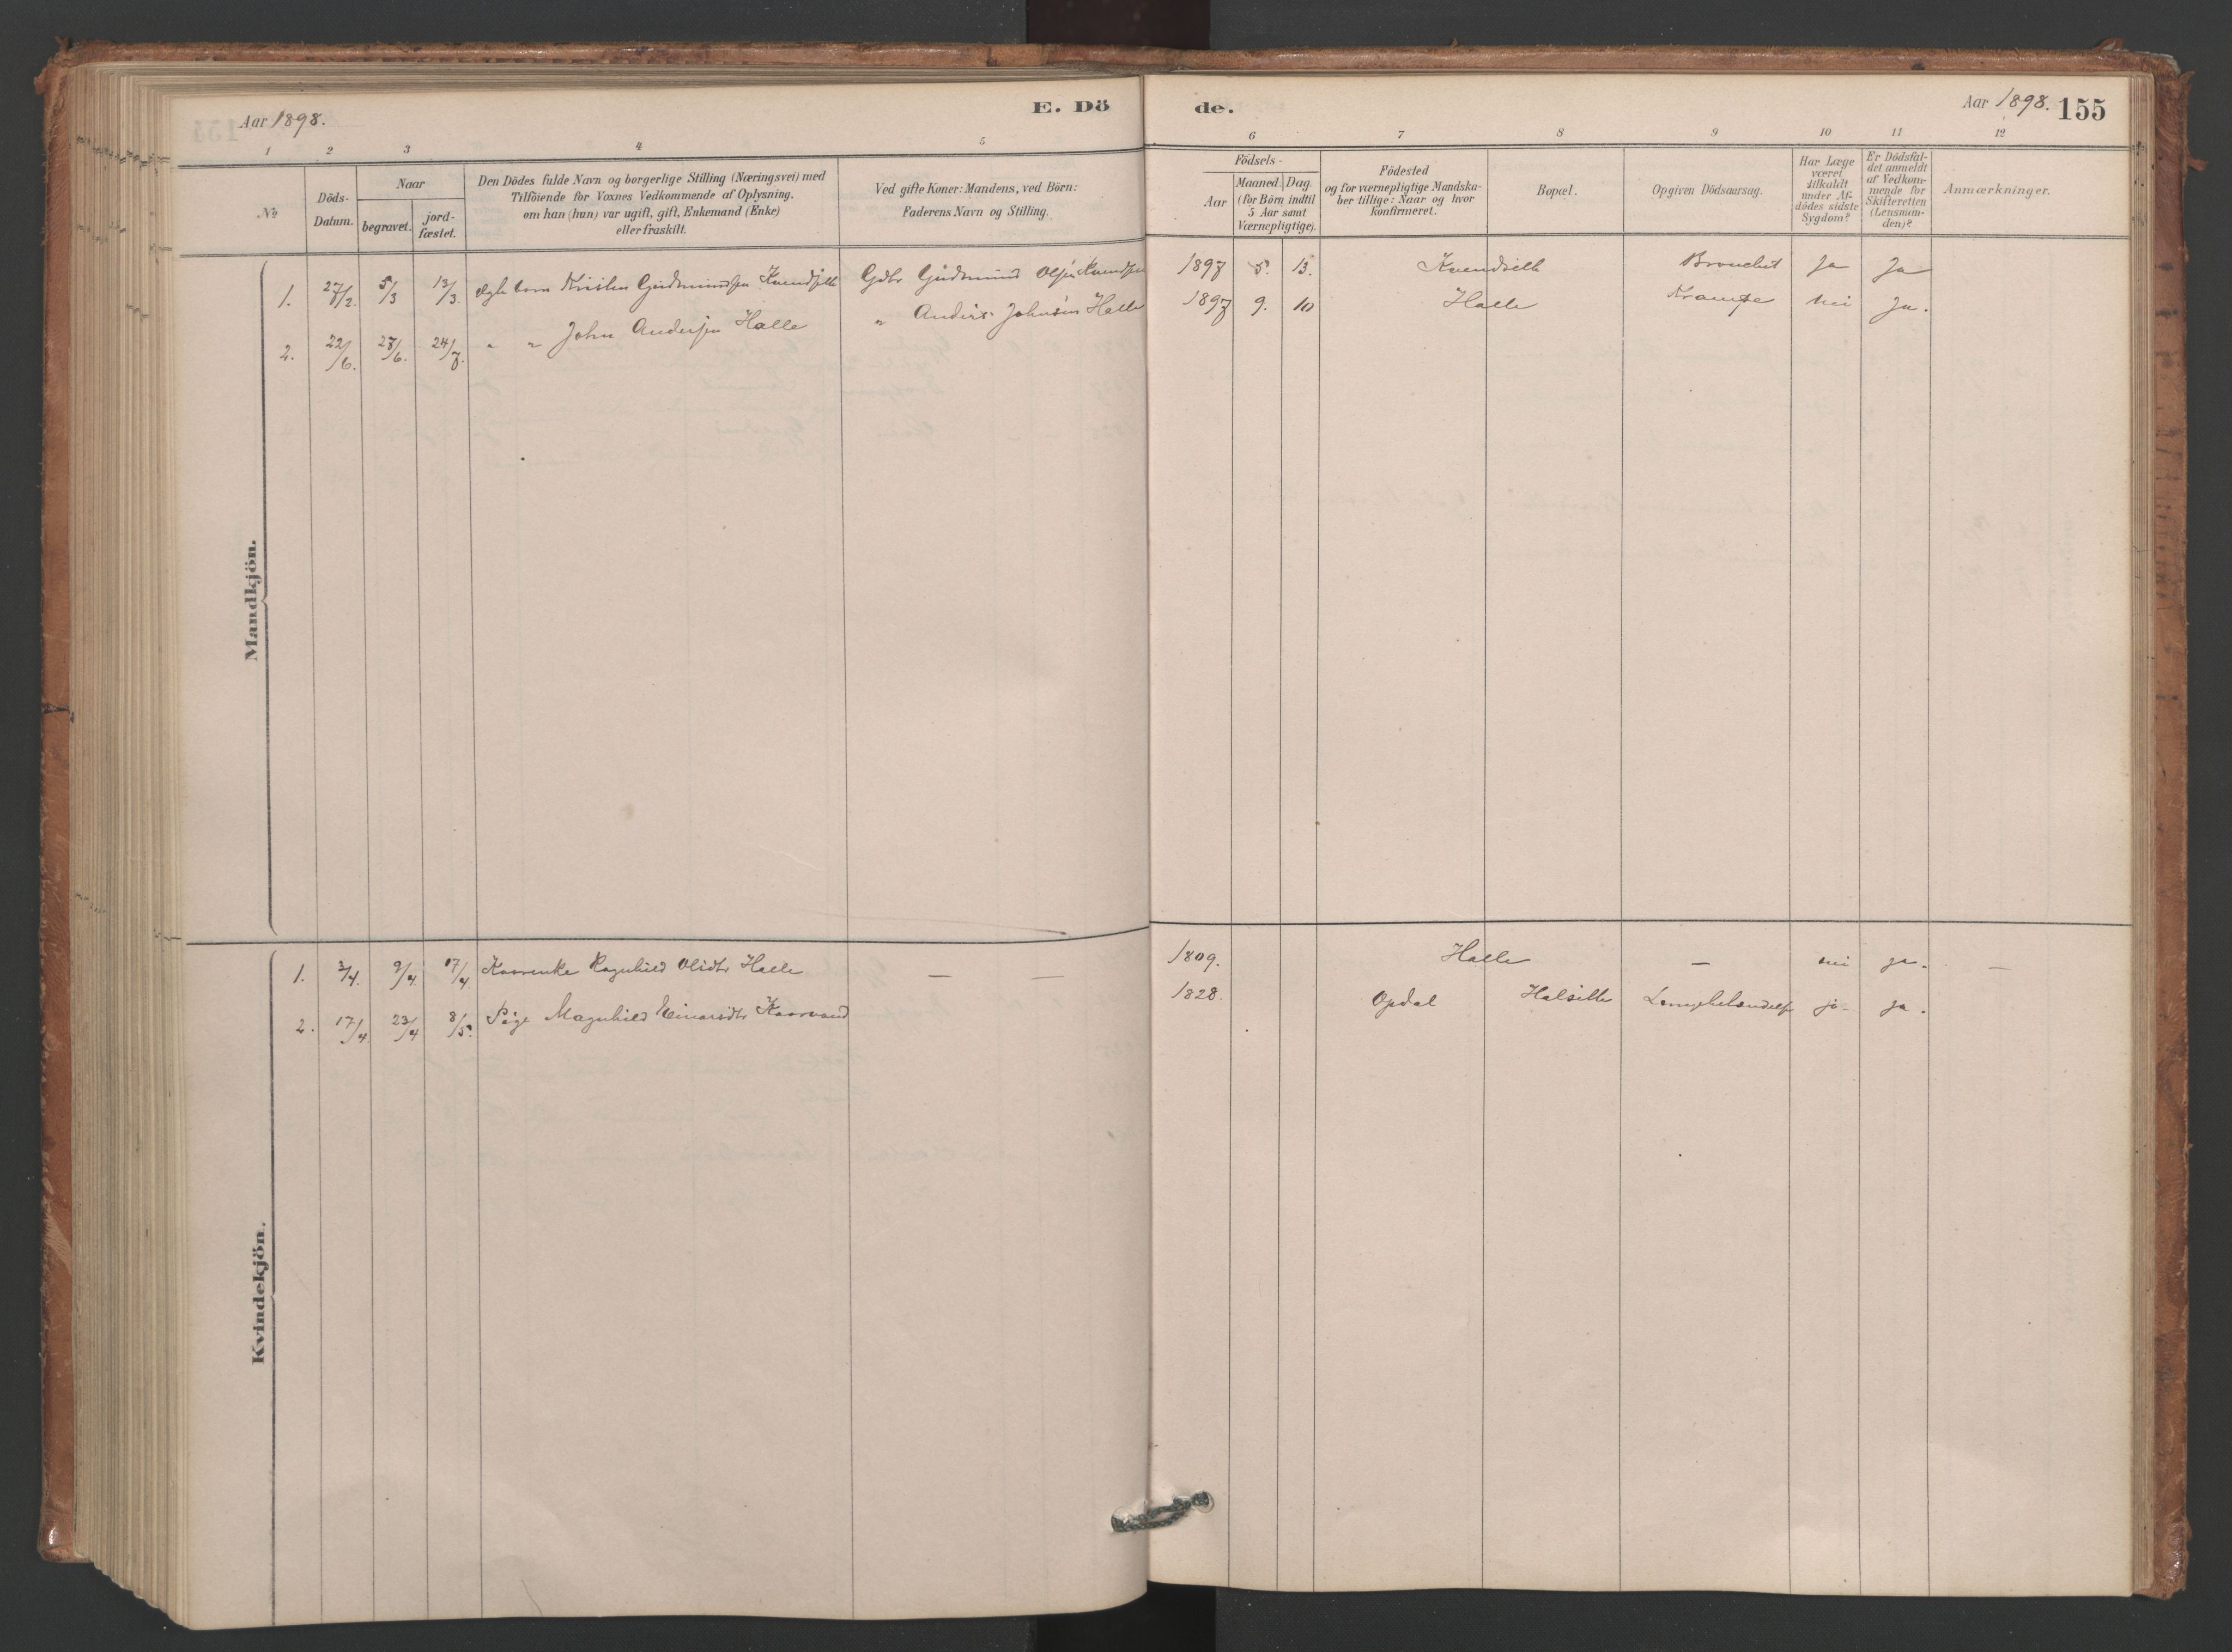 Aar 1898.
E. Dö
de.
Aar 1898. 155
1 2 3 4 5 6 7 8 9 10 11 12
No
Döds-Datum.
Naar
begravet.
jord-fæstet.
Den Dödes fulde Navn og borgerlige Stilling (Næringsvei) med
Tilföiende for Voxnes Vedkommende af Oplysning.
om han (hun) var ugift, gift, Enkemand (Enke)
eller fraskilt.
Ved gifte Koner: Mandens, ved Börn:
Faderens Navn og Stilling.
Födsels-
Aar
Maaned. Dag.
(for Börn indtil
5 Aar samt
Værnepligtige).
Födested
og for værnepligtige Mandska-
ber tillige: Naar og hvor
konfirmeret.
Bopæl.
Opgiven Dödsaarsag.
Har Læge
været
tilkaldt
under Af-
dödes sidste
Sygdom?
Er Dödsfal-
det anmeldt
af Vedkom-
mende for
Skifteretten
(Lensman-
den)?
Anmærkninger.
Mandkjön.
1. 27/2. 5/3 13/3. Kristen Gudmundsen Gdbr Gudmund Olsen 1897 5. 13. Bronchit Ja Ja
2. 22/6. 28/6. 24/7. " " John Andersen Halle " Anders Johnsen Halle 1897 9. 10 Halle Krampe nei Ja.
Kvindekjön.
1. 3/4. 9/4. 17/4. Ragnhild Olsdtr Halle — — 1809. Halle — nei ja. —
2. 17/4. 23/4 8/5. Pige Magnhild Einarsdtr 1828. Opdal ja ja.